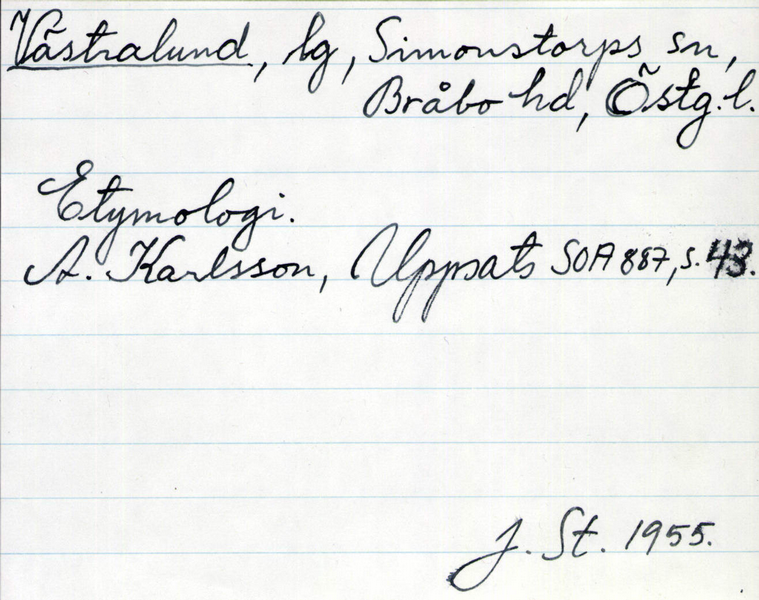 Västralund, lg, Simonstorps sn,
Bråbo hd, Östg. l.
Etymologi.
A. Karlsson, Uppsats SOA 887, s. 43.
J. St. 1955.